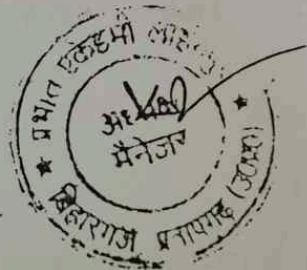 प्रभात एकेडमी
मैनेजर
बिहारगंज प्रतापगढ़ (उ०प्र०)